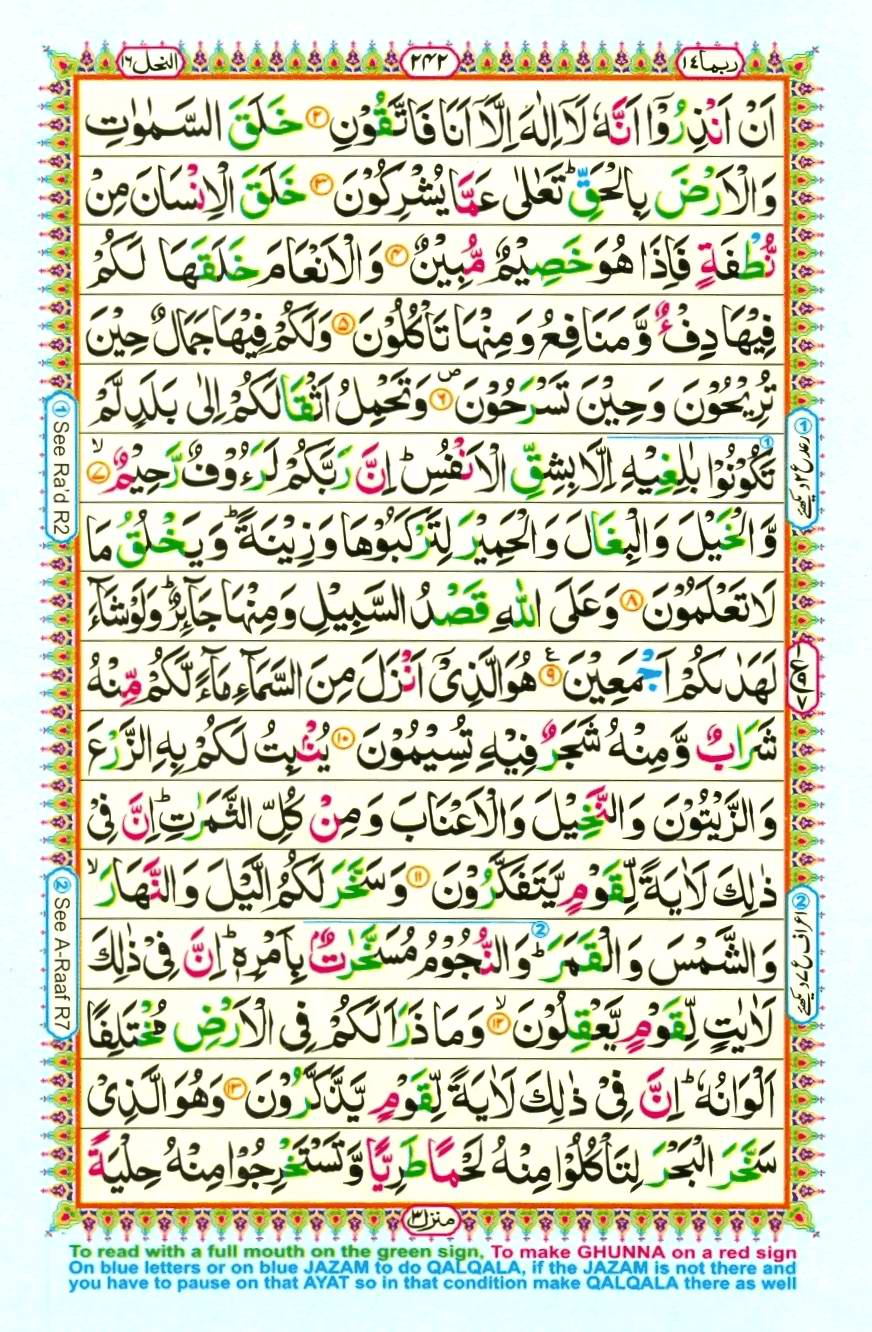 ربما ١٤
٢٤٢
النحل ١٦
اَنْ اَنْذِرُوْۤا اَنَّهٗ لَاۤ اِلٰهَ اِلَّاۤ اَنَا فَاتَّقُوْنِ ۝٢ خَلَقَ السَّمٰوٰتِ
وَالْاَرْضَ بِالْحَقِّ ؕ تَعٰلٰى عَمَّا يُشْرِكُوْنَ ۝٣ خَلَقَ الْاِنْسَانَ مِنْ
نُّطْفَةٍ فَاِذَا هُوَ خَصِيْمٌ مُّبِيْنٌ ۝٤ وَالْاَنْعَامَ خَلَقَهَا لَكُمْ
فِيْهَا دِفْءٌ وَّمَنَافِعُ وَمِنْهَا تَاْكُلُوْنَ ۝٥ وَلَكُمْ فِيْهَا جَمَالٌ حِيْنَ
تُرِيْحُوْنَ وَحِيْنَ تَسْرَحُوْنَ ۝٦ ص وَتَحْمِلُ اَثْقَالَكُمْ اِلٰى بَلَدٍ لَّمْ
تَكُوْنُوْا بٰلِغِيْهِ اِلَّا بِشِقِّ الْاَنْفُسِ ؕ اِنَّ رَبَّكُمْ لَرَءُوْفٌ رَّحِيْمٌ ۝٧ ۙ
وَّالْخَيْلَ وَالْبِغَالَ وَالْحَمِيْرَ لِتَرْكَبُوْهَا وَزِيْنَةً ؕ وَيَخْلُقُ مَا
لَا تَعْلَمُوْنَ ۝٨ وَعَلَى اللّٰهِ قَصْدُ السَّبِيْلِ وَمِنْهَا جَآئِرٌ ؕ وَلَوْ شَآءَ
لَهَدٰىكُمْ اَجْمَعِيْنَ ۝٩ ع هُوَ الَّذِيْۤ اَنْزَلَ مِنَ السَّمَآءِ مَآءً لَّكُمْ مِّنْهُ
شَرَابٌ وَّمِنْهُ شَجَرٌ فِيْهِ تُسِيْمُوْنَ ۝١٠ يُنْۢبِتُ لَكُمْ بِهِ الزَّرْعَ
وَالزَّيْتُوْنَ وَالنَّخِيْلَ وَالْاَعْنَابَ وَمِنْ كُلِّ الثَّمَرٰتِ ؕ اِنَّ فِيْ
ذٰلِكَ لَاٰيَةً لِّقَوْمٍ يَّتَفَكَّرُوْنَ ۝١١ وَسَخَّرَ لَكُمُ الَّيْلَ وَالنَّهَارَ ۙ
وَالشَّمْسَ وَالْقَمَرَ ؕ وَالنُّجُوْمُ مُسَخَّرٰتٌۢ بِاَمْرِهٖ ؕ اِنَّ فِيْ ذٰلِكَ
لَاٰيٰتٍ لِّقَوْمٍ يَّعْقِلُوْنَ ۝١٢ ۙ وَمَا ذَرَاَ لَكُمْ فِى الْاَرْضِ مُخْتَلِفًا
اَلْوَانُهٗ ؕ اِنَّ فِيْ ذٰلِكَ لَاٰيَةً لِّقَوْمٍ يَّذَّكَّرُوْنَ ۝١٣ وَهُوَ الَّذِيْ
سَخَّرَ الْبَحْرَ لِتَاْكُلُوْا مِنْهُ لَحْمًا طَرِيًّا وَّتَسْتَخْرِجُوْا مِنْهُ حِلْيَةً
① See Ra'd R2
② See A-Raaf R7
① رعد ع ٢ دیکھئے
② اعراف ع ٧ دیکھئے
منزل ٣
To read with a full mouth on the green sign, To make GHUNNA on a red sign
On blue letters or on blue JAZAM to do QALQALA, if the JAZAM is not there and
you have to pause on that AYAT so in that condition make QALQALA there as well